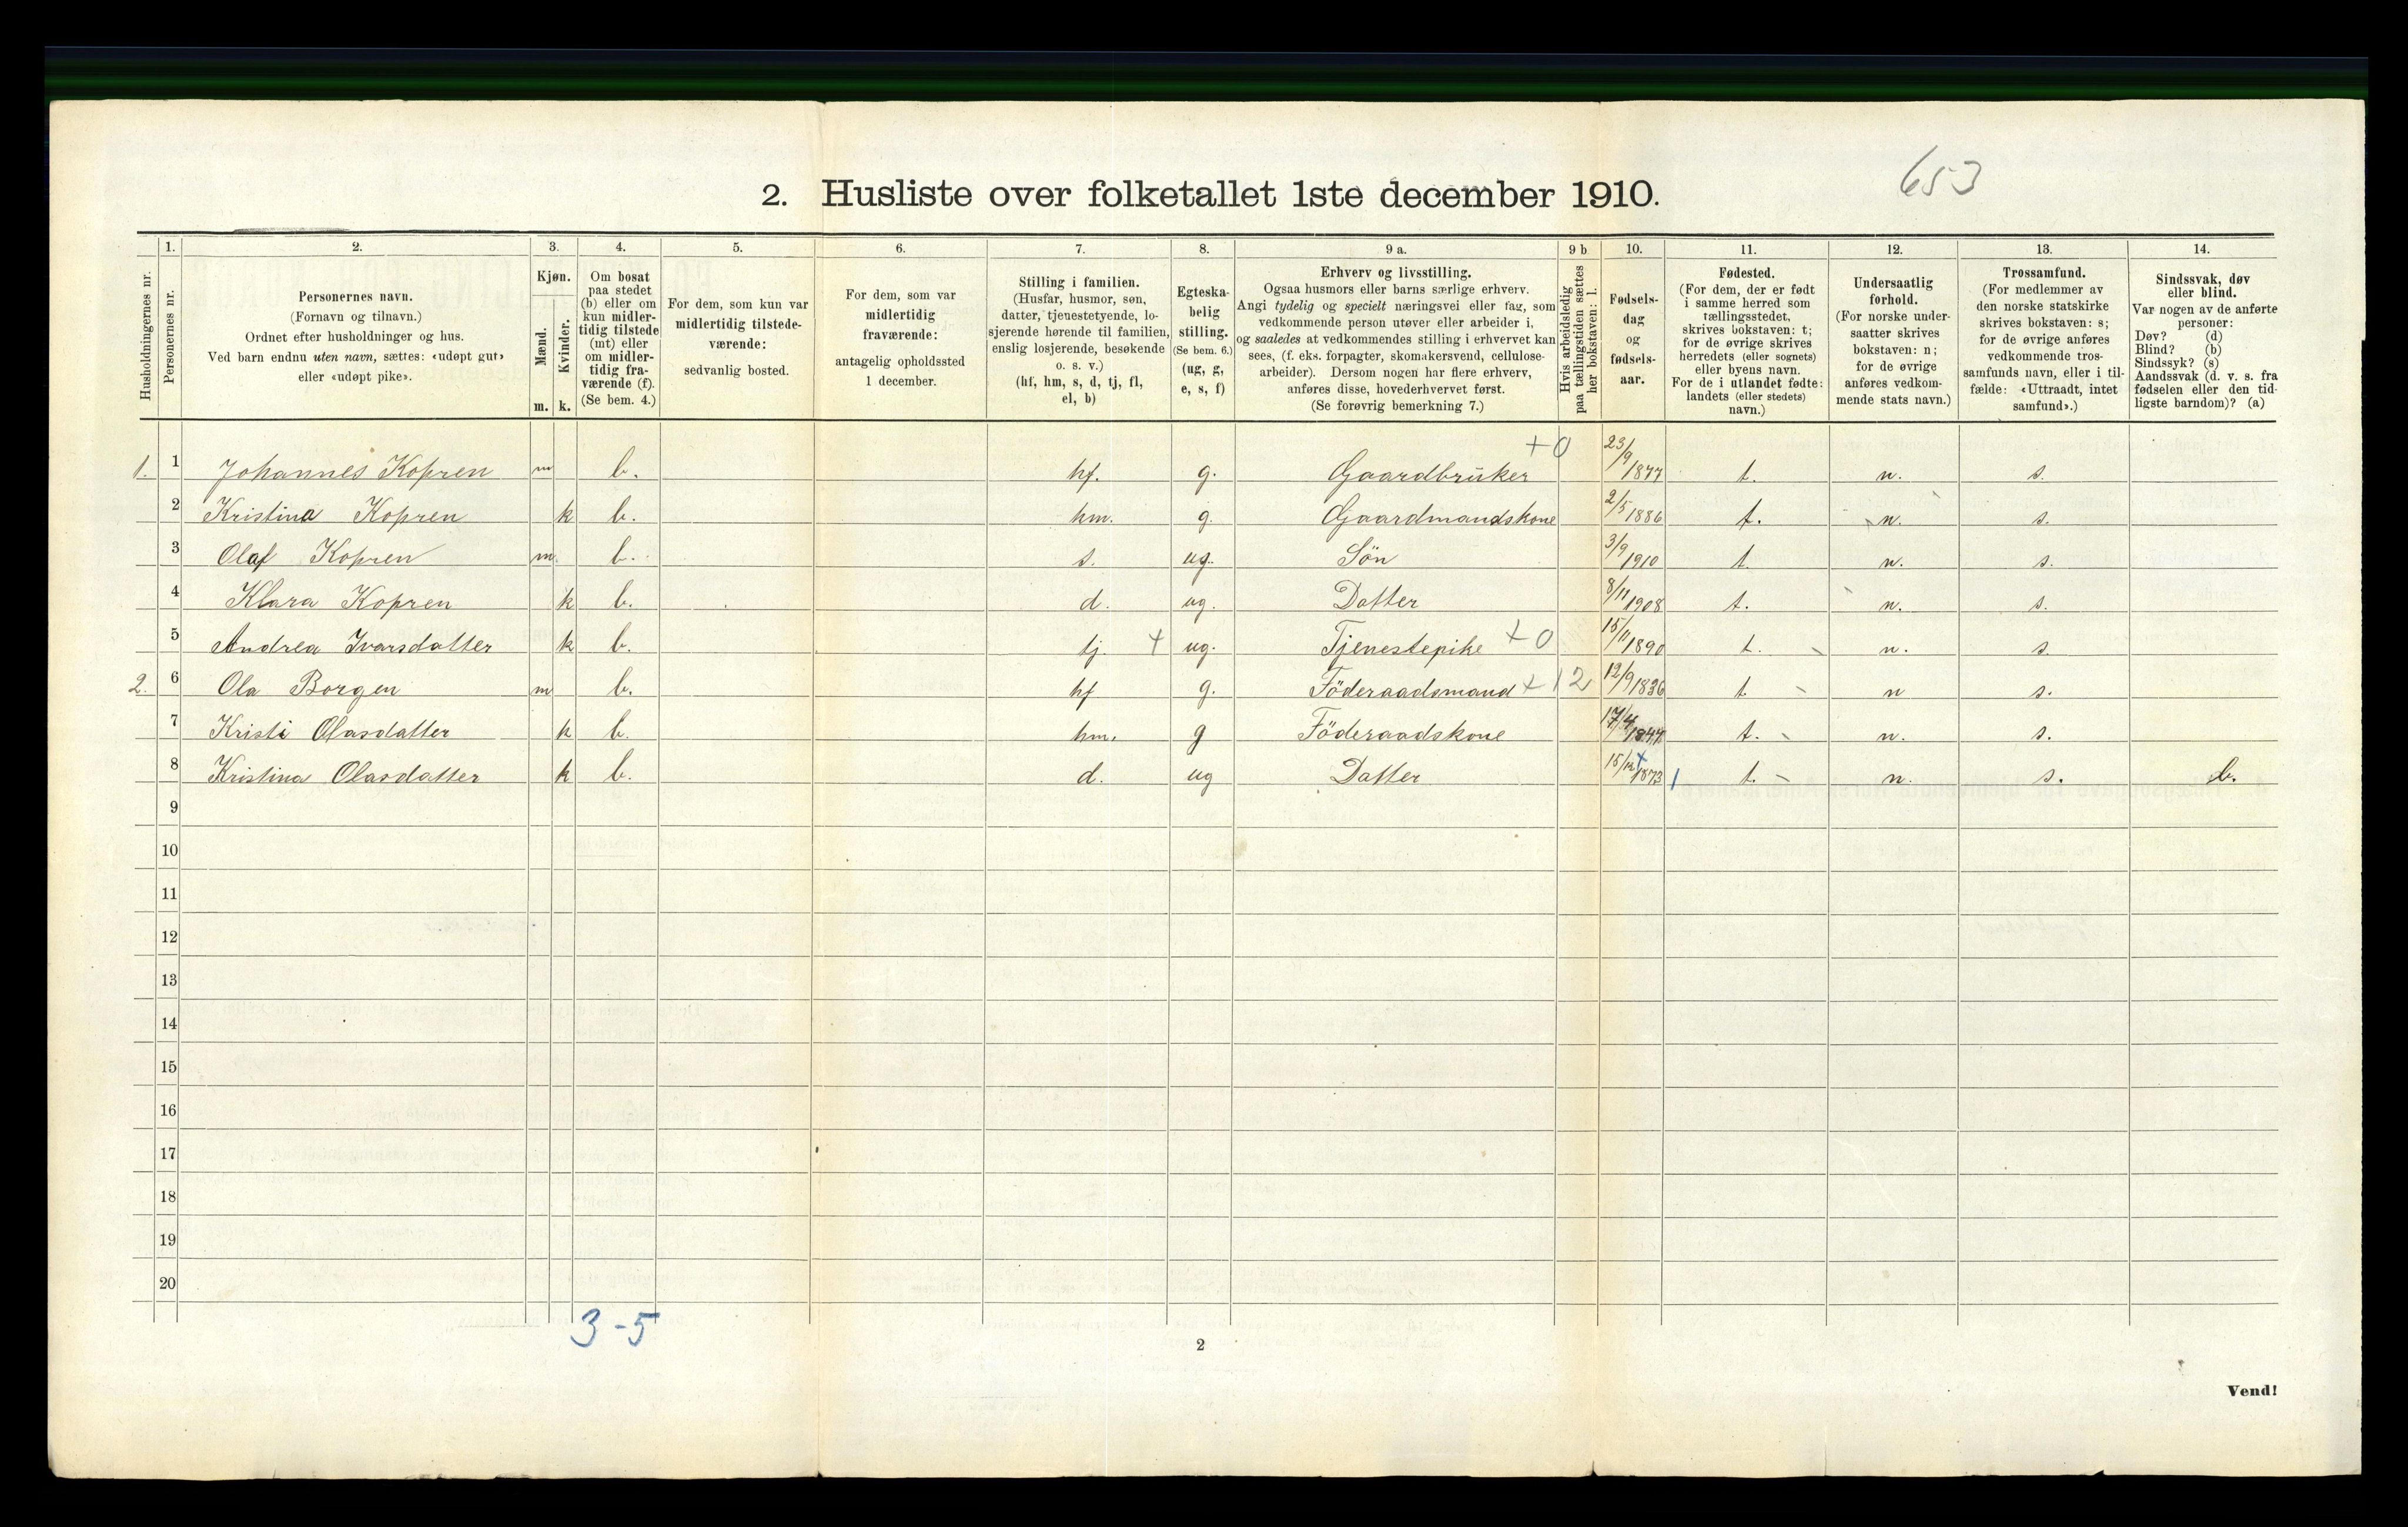 653
2. Husliste over folketallet 1ste december 1910.
Husholdningernes nr.
1. Personernes nr.
2. Personernes navn. (Fornavn og tilnavn.) Ordnet efter husholdninger og hus. Ved barn endnu uten navn, sættes: «udøpt gut» eller «udøpt pike».
3. Kjøn. Mænd. m. Kvinder. k.
4. Om bosat paa stedet (b) eller om kun midler- tidig tilstede (mt) eller om midler- tidig fra- værende (f). (Se bem. 4.)
5. For dem, som kun var midlertidig tilstede- værende: sedvanlig bosted.
6. For dem, som var midlertidig fraværende: antagelig opholdssted 1 december.
7. Stilling i familien. (Husfar, husmor, søn, datter, tjenestetyende, lo- sjerende hørende til familien, enslig losjerende, besøkende o. s. v.) (hf, hm, s, d, tj, fl, el, b)
8. Egteska- belig stilling. (Se bem. 6.) (ug, g, e, s, f)
9 a. Erhverv og livsstilling. Ogsaa husmors eller barns særlige erhverv. Angi tydelig og specielt næringsvei eller fag, som vedkommende person utøver eller arbeider i, og saaledes at vedkommendes stilling i erhvervet kan sees, (f. eks. forpagter, skomakersvend, cellulose- arbeider). Dersom nogen har flere erhverv, anføres disse, hovederhvervet først. (Se forøvrig bemerkning 7.)
9 b Hvis arbeidsledig paa tællingstiden sættes her bokstaven: l.
10. Fødsels- dag og fødsels- aar.
11. Fødested. (For dem, der er født i samme herred som tællingsstedet, skrives bokstaven: t; for de øvrige skrives herredets (eller sognets) eller byens navn. For de i utlandet fødte: landets (eller stedets) navn.)
12. Undersaatlig forhold. (For norske under- saatter skrives bokstaven: n; for de øvrige anføres vedkom- mende stats navn.)
13. Trossamfund. (For medlemmer av den norske statskirke skrives bokstaven: s; for de øvrige anføres vedkommende tros- samfunds navn, eller i til- fælde: «Uttraadt, intet samfund».)
14. Sindssvak, døv eller blind. Var nogen av de anførte personer: Døv? (d) Blind? (b) Sindssyk? (s) Aandssvak (d. v. s. fra fødselen eller den tid- ligste barndom)? (a)
1. 1 Johannes Kopren m b. hf. g. Gaardbruker +0 23/9 1877 t. n. s.
2 Kristina Kopren k b. hm. g. Gaardmandskone 2/5 1886 t. n. s.
3 Olaf Kopren m. b. s. ug. Sön 3/9 1910 t. n. s.
4 Klara Kopren k b. d. ug. Datter 8/11 1908 t. n. s.
5 Andrea Ivarsdatter k b. tj. + ug. Tjenestepike +0 15/11 1890 t. n. s.
2. 6 Ola Borgen m b. hf g. Föderaadsmand +12 12/9 1836 t. n s.
7 Kristi Olasdatter k b. hm. g Föderaadskone 17/4 1847 t. n. s.
8 Kristina Olasdatter k b. d. ug Datter 15/12 1873 1 t. n. s. b.
9
10
11
12
13
14
15
16
17
18
19
20
3-5
2
Vend!